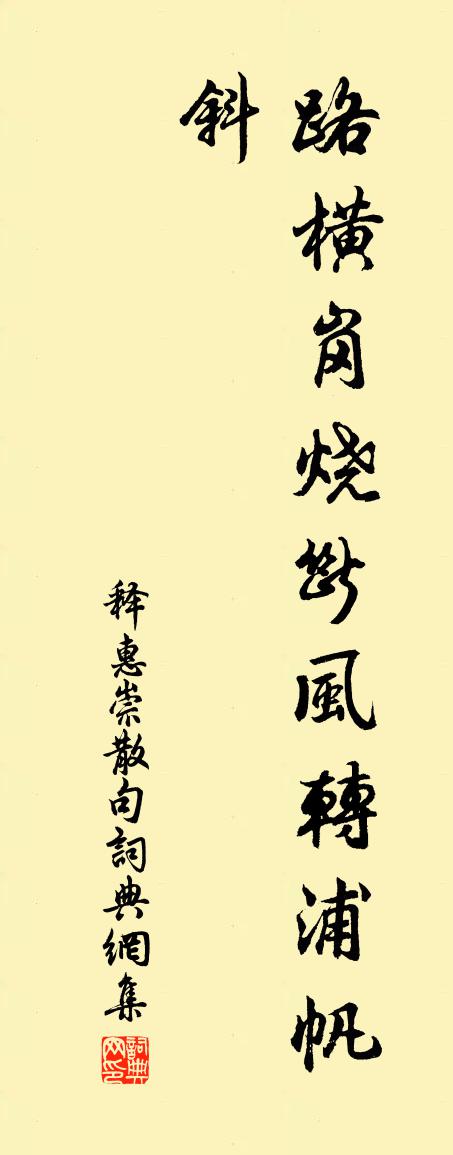 路横岗烧断風轉浦帆
斜
释惠崇散句詞典網集
詞典网印